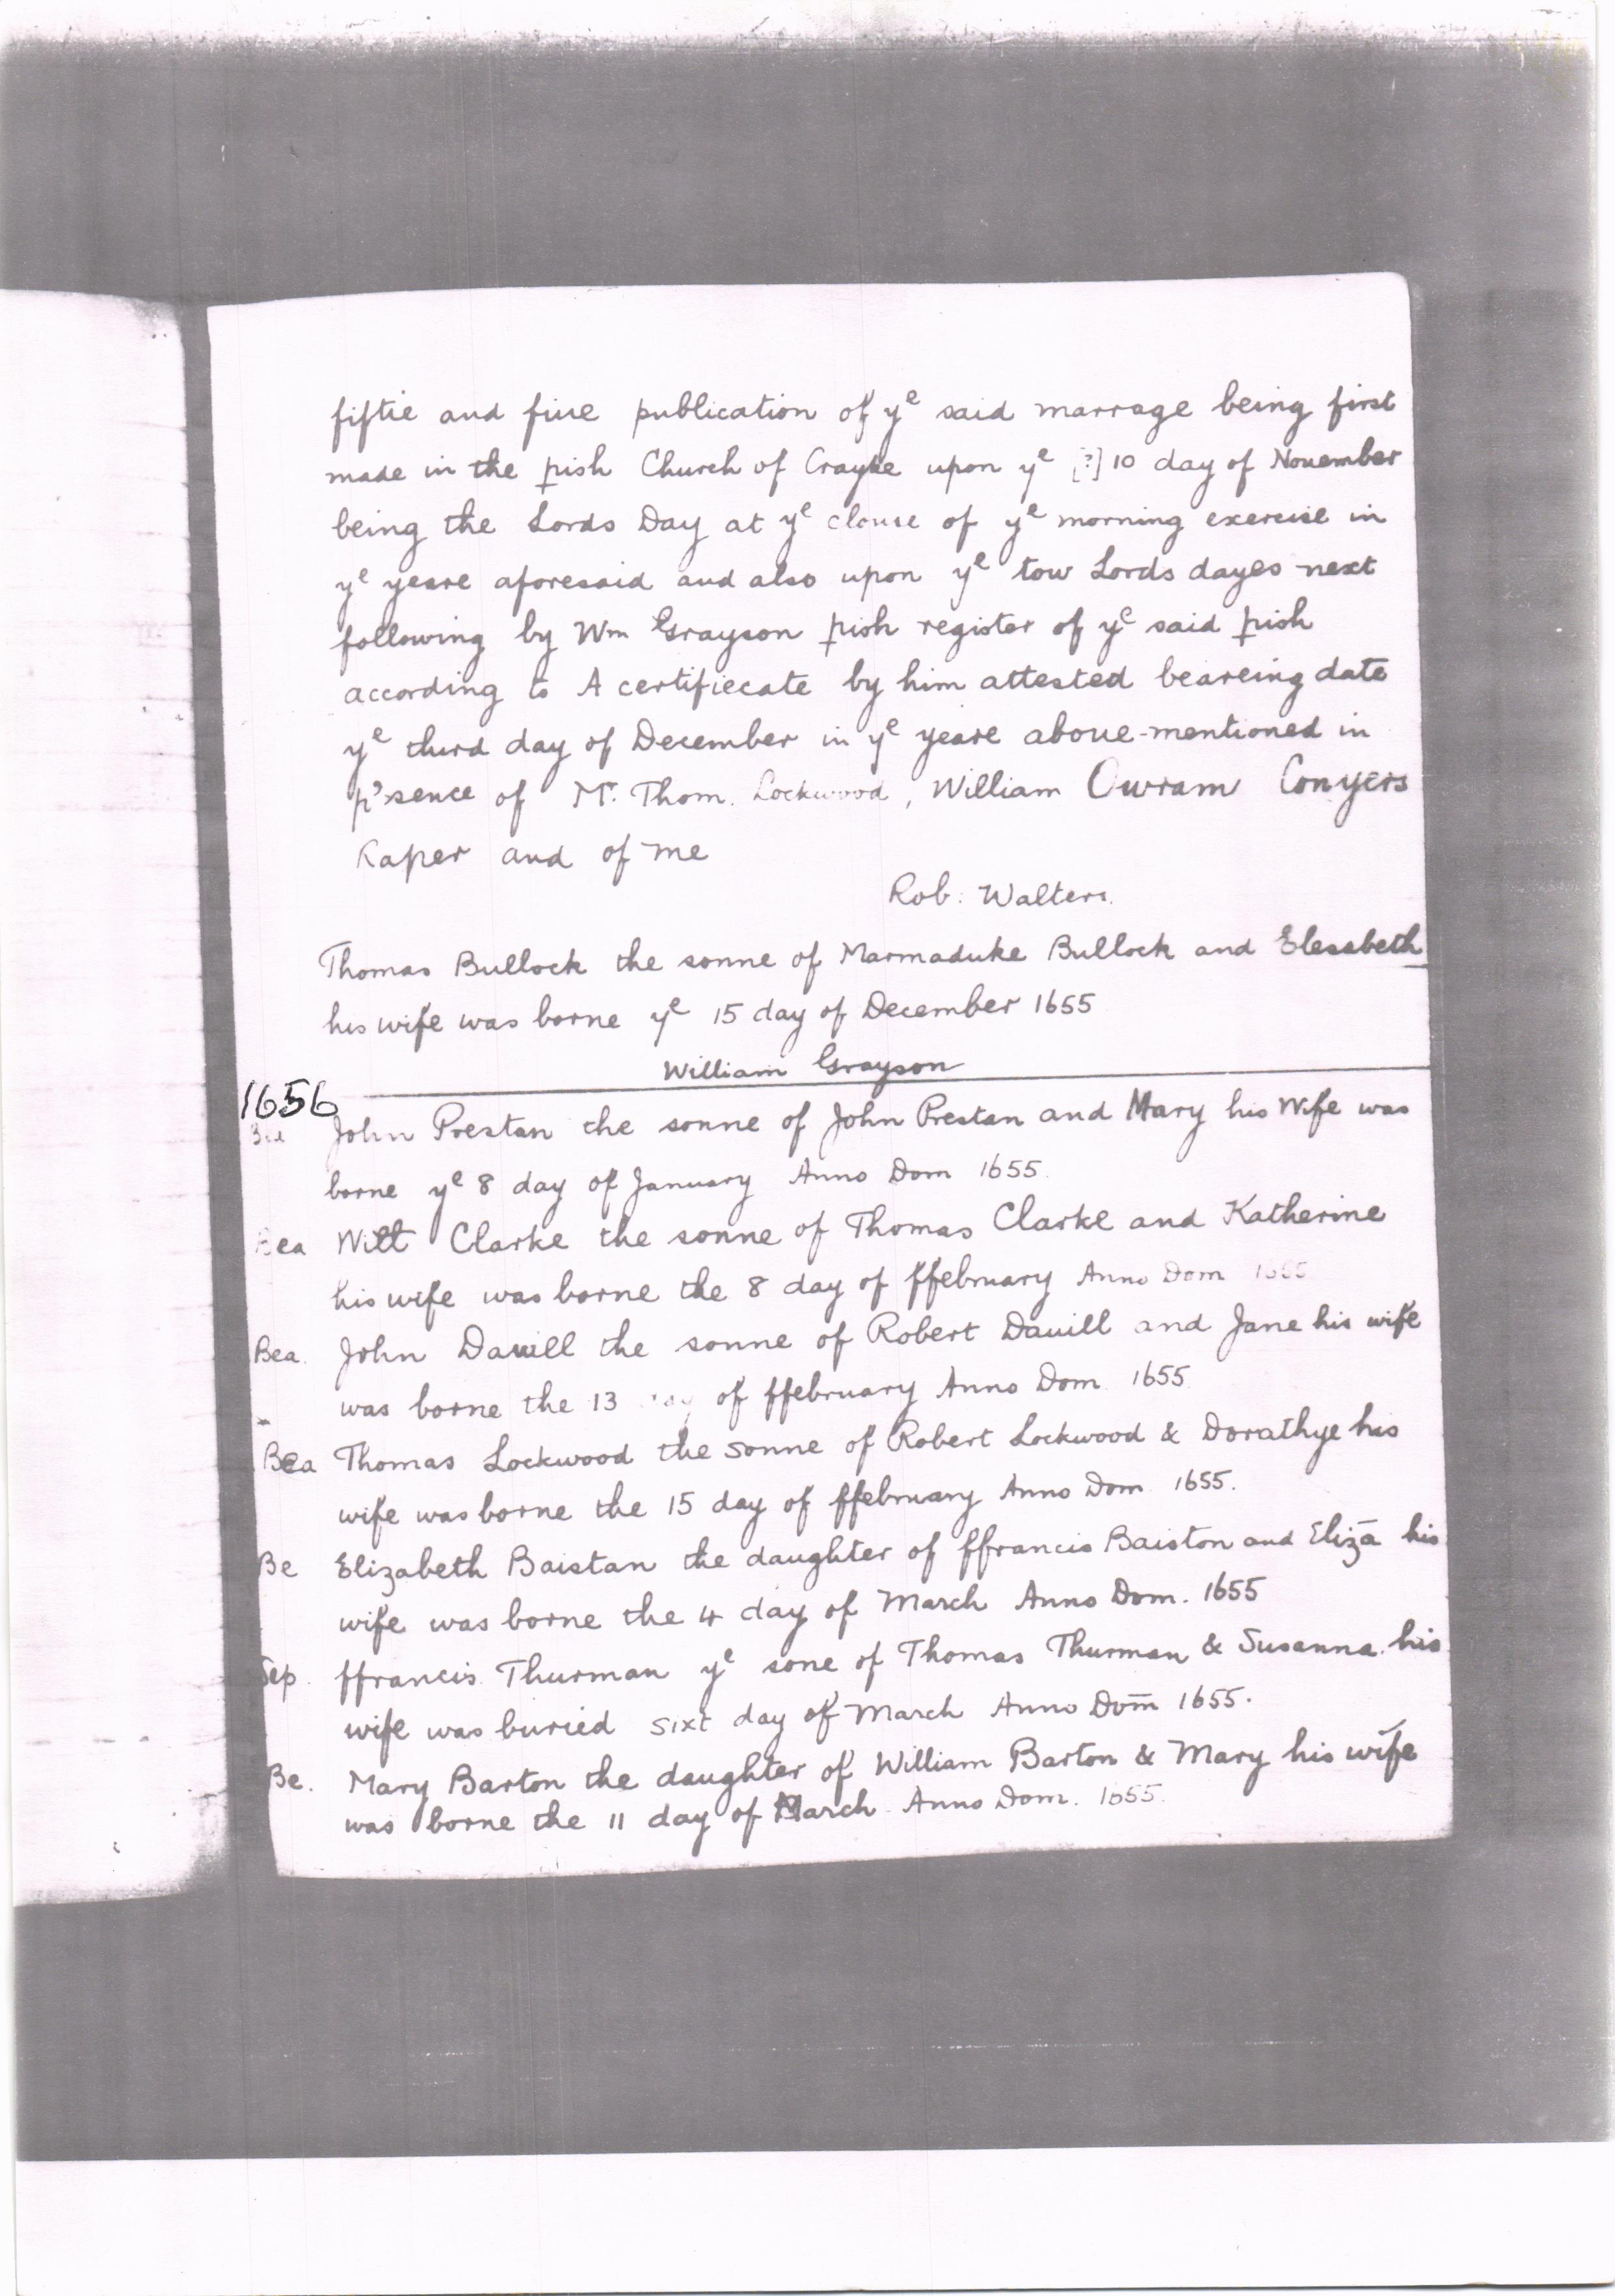 fiftie and fiue publication of yᵉ said marrage being first
made in the pish Church of Crayke upon yᵉ [?] 10 day of Nouember
being the Lords Day at yᵉ clouse of yᵉ morning exercise in
yᵉ yeare aforesaid and also upon yᵉ tow Lords dayes next
following by Wm Grayson pish register of yᵉ said pish
according to A certifiecate by him attested beareing date
yᵉ third day of December in yᵉ yeare aboue-mentioned in
p'sence of Mr. Thom. Lockwood, William Owram Conyers
Raper and of me
Rob: Walters.
Thomas Bullock the sonne of Marmaduke Bullock and Elesabeth
his wife was borne yᵉ 15 day of December 1655
William Grayson
1656
John Prestan the sonne of John Prestan and Mary his Wife was
borne yᵉ 8 day of January Anno Dom 1655.
Bea Willt Clarke the sonne of Thomas Clarke and Katherine
his wife was borne the 8 day of ffebruary Anno Dom 1655
Bea. John Dauill the sonne of Robert Dauill and Jane his wife
was borne the 13 day of ffebruary Anno Dom 1655
Bea Thomas Lockwood the sonne of Robert Lockwood & Dorathye his
wife was borne the 15 day of ffebruary Anno Dom 1655.
Be Elizabeth Baistan the daughter of ffrancis Baiston and Elizā his
wife was borne the 4 day of March Anno Dom. 1655
Sep. ffrancis Thurman yᵉ sone of Thomas Thurman & Susanna his
wife was buried sixt day of March Anno Dom̄ 1655.
Be. Mary Barton the daughter of William Barton & Mary his wife
was borne the 11 day of March Anno Dom. 1655.